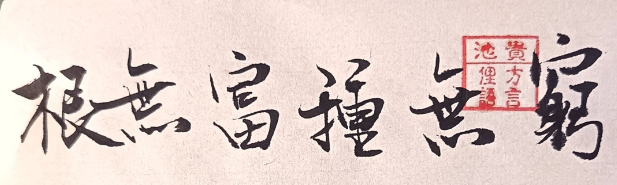 窮無種富無根
貴池
方言
俚語